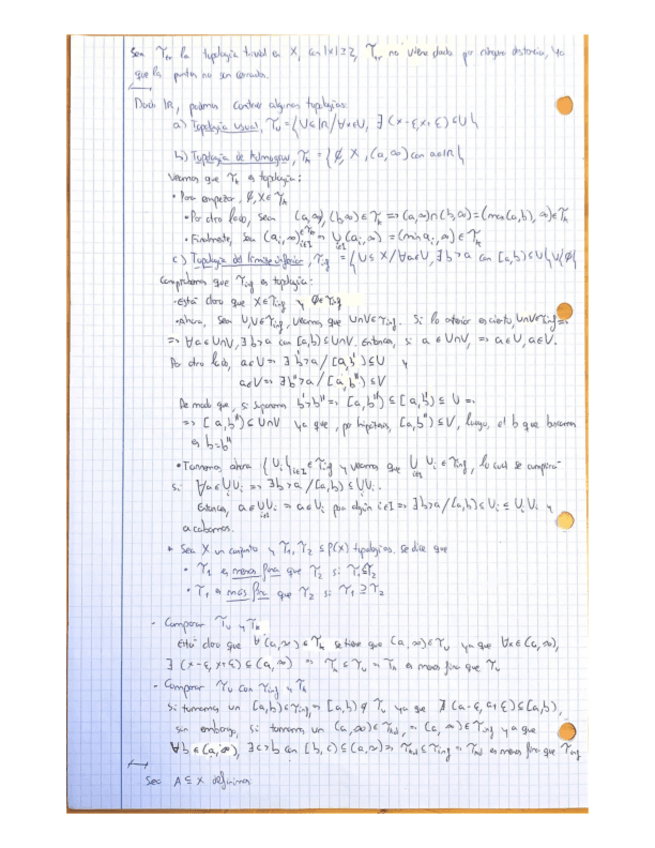 Sea τ_tr la topología trivial en X, con |X|≥2, τ_tr no viene dada por ninguna distancia, ya
que los puntos no son cerrados.
Dado ℝ, podemos construir algunas topologías:
a) Topología usual, τ_u = {U⊆ℝ / ∀x∈U, ∃ (x-ε,x+ε)⊆U}
b) Topología de Kolmogorov, τ_k = {∅, X, (a,∞) con a∈ℝ}
Veamos que τ_k es topología:
• Para empezar, ∅,X∈τ_k
• Por otro lado, sean (a,∞),(b,∞)∈τ_k => (a,∞)∩(b,∞)=(max(a,b),∞)∈τ_k
• Finalmente, sea (a_i,∞)_{i∈I}∈τ_k => ∪_{i∈I}(a_i,∞) = (min a_i,∞)∈τ_k
c) Topología del límite inferior, τ_inf = {U⊆X / ∀a∈U, ∃b>a con [a,b)⊆U}∪{∅}
Comprobemos que τ_inf es topología:
-Está claro que X∈τ_inf y ∅∈τ_inf
-Ahora, sean U,V∈τ_inf, veamos que U∩V∈τ_inf. Si lo anterior es cierto, U∩V∈τ_inf =>
=> ∀a∈U∩V, ∃b>a con [a,b)⊆U∩V. Entonces, si a∈U∩V, => a∈U, a∈V.
Por otro lado, a∈U => ∃b'>a / [a,b')⊆U y
a∈V => ∃b''>a / [a,b'')⊆V
De modo que, si suponemos b'>b'' => [a,b'')⊆[a,b')⊆U =>
=> [a,b'')⊆U∩V ya que, por hipótesis, [a,b'')⊆V, luego, el b que buscamos
es b=b''
• Tomamos ahora {U_i}_{i∈I}∈τ_inf y veamos que ∪_{i∈I} U_i∈τ_inf, lo cual se cumplirá
si ∀a∈∪U_i => ∃b>a / [a,b)⊆∪U_i.
Entonces, a∈∪_{i∈I}U_i => a∈U_i para algún i∈I => ∃b>a / [a,b)⊆U_i⊆∪U_i y
acabamos.
• Sea X un conjunto y τ_1, τ_2 ⊆P(X) topologías. Se dice que
• τ_1 es menos fina que τ_2 si τ_1⊆τ_2
• τ_1 es más fina que τ_2 si τ_1⊇τ_2
- Comparar τ_u y τ_k
Está claro que ∀(a,∞)∈τ_k se tiene que (a,∞)∈τ_u ya que ∀x∈(a,∞),
∃ (x-ε,x+ε)⊆(a,∞) => τ_k⊆τ_u => τ_k es menos fina que τ_u
- Comparar τ_u con τ_inf y τ_k
Si tomamos un [a,b)∈τ_inf => [a,b)∉τ_u ya que ∄ (a-ε,a+ε)⊆[a,b),
sin embargo, si tomamos un (a,∞)∈ => (a,∞)∈τ_inf ya que
∀b∈(a,∞), ∃c>b con [b,c)⊆(a,∞) => es menos fina que τ_inf
Sea A⊆X definimos